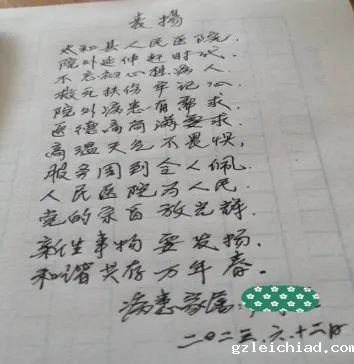 表揚
太和县人民医院,
院外延伸赶时代.
不忘初心想病人.
救死扶伤牢记心
院外病患有需求.
医德高尚满要求.
高温天气不畏惧,
服务周到令人佩.
人民医院为人民.
党的宗旨放光辉.
新生事物要发扬.
和谐共存万年春.
病患家属:
二〇二三.六.十二日
gzleichiad.com